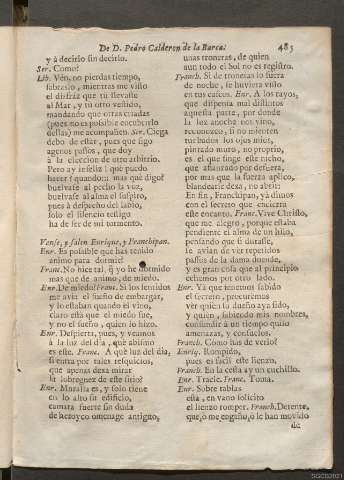 De D. Pedro Calderon de la Barca. 485
y à decirlo sin decirlo.
Ser. Como?
Lib. Vèn, no pierdas tiempo,
sabràslo, mientras me visto
el disfràz que tù llevaste
al Mar, y tu otro vestido,
mandando que otras criadas
(pues no es possible encubrirlo
dellas) me acompañen. Ser. Ciega
debo de estàr, pues que sigo
agenos passos, que doy
à la eleccion de otro arbitrio.
Pero ay infeliz! què puedo
hacer? quando:: mas què digo?
buelvase al pecho la voz,
buelvase al alma el suspiro,
pues à despecho del labio,
solo el silencio testigo
ha de ser de mi tormento.
Vanse, y salen Enrique, y Franchipan.
Enr. Es possible que has tenido
animo para dormir?
Fran. No hice tal, q̃ yo he dormido
mas que de animo, de miedo.
Enr. De miedo? Fran. Si los sentidos
me avia el sueño de embargar,
y lo estaban quando èl vino,
claro està que el miedo fue,
y no el sueño, quien lo hizo.
Enr. Despierta, pues, y veamos
à la luz del dia, què abismo
es este. Franc. A què luz del dia,
si entra por tales resquicios,
que apenas dexa mirar
la lobreguez de este sitio?
Enr. Mazmorra es, y solo tiene
en lo alto su edificio,
camara fuerte sin duda
de heroyco omenage antiguo,
unas troneras, de quien
aun todo el Sol no es registro.
Franch. Si de troneras lo fuera
de noche, se huviera visto
en tus cascos. Enr. A los rayos,
que dispensa mal distintos
aquesta parte, por donde
la luz anoche nos vino,
reconozco, si no mienten
turbados los ojos mios,
pintado muro, no proprio,
es el que finge este nicho,
que afianzado por defuera,
por mas que la fuerza aplico,
blandearle dexa, no abrir:
En fin, Franchipan, yà dimos
con el secreto que encierra
este encanto. Franc. Vive Christo,
que me alegro, porque estaba
pendiente el alma de un hilo,
pensando que si durasse,
se avian de vèr repetidos
passos de la dama duende,
y es gran cosa que al principio
echemos por otro lado.
Enr. Yà que tenemos sabido
el secreto, procuremos
vèr quien su dueño aya sido,
y quien, sabiendo mis nombres,
consumir à un tiempo quiso
amenazas, y consuelos.
Franch. Cómo has de verlo?
Enriq. Rompido,
pues es facil este lienzo.
Franch. En la cesta ay un cuchillo.
Enr. Traele. Franc. Toma.
Enr. Sobre tablas
està, en vano solicito
el lienzo romper. Franch. Detente,
que, ò me engaño, ò le han movido
de
SGCB2021